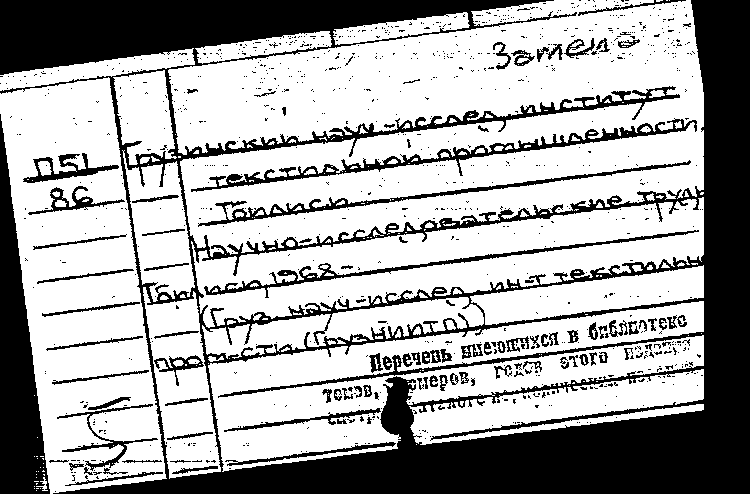 Замена
П51
86
Грузинский науч.-исслед. институт
текстильной промышленности.
Тбилиси
Научно-исследовательские труды
Тбилиси, 1968-
(Груз. науч-исслед. ин-т текстильн
пром-сти (ГрузНИИТП))
Перечень имеющихся в библиотеке
томов, номеров, годов этого издания
смотри в каталоге
5